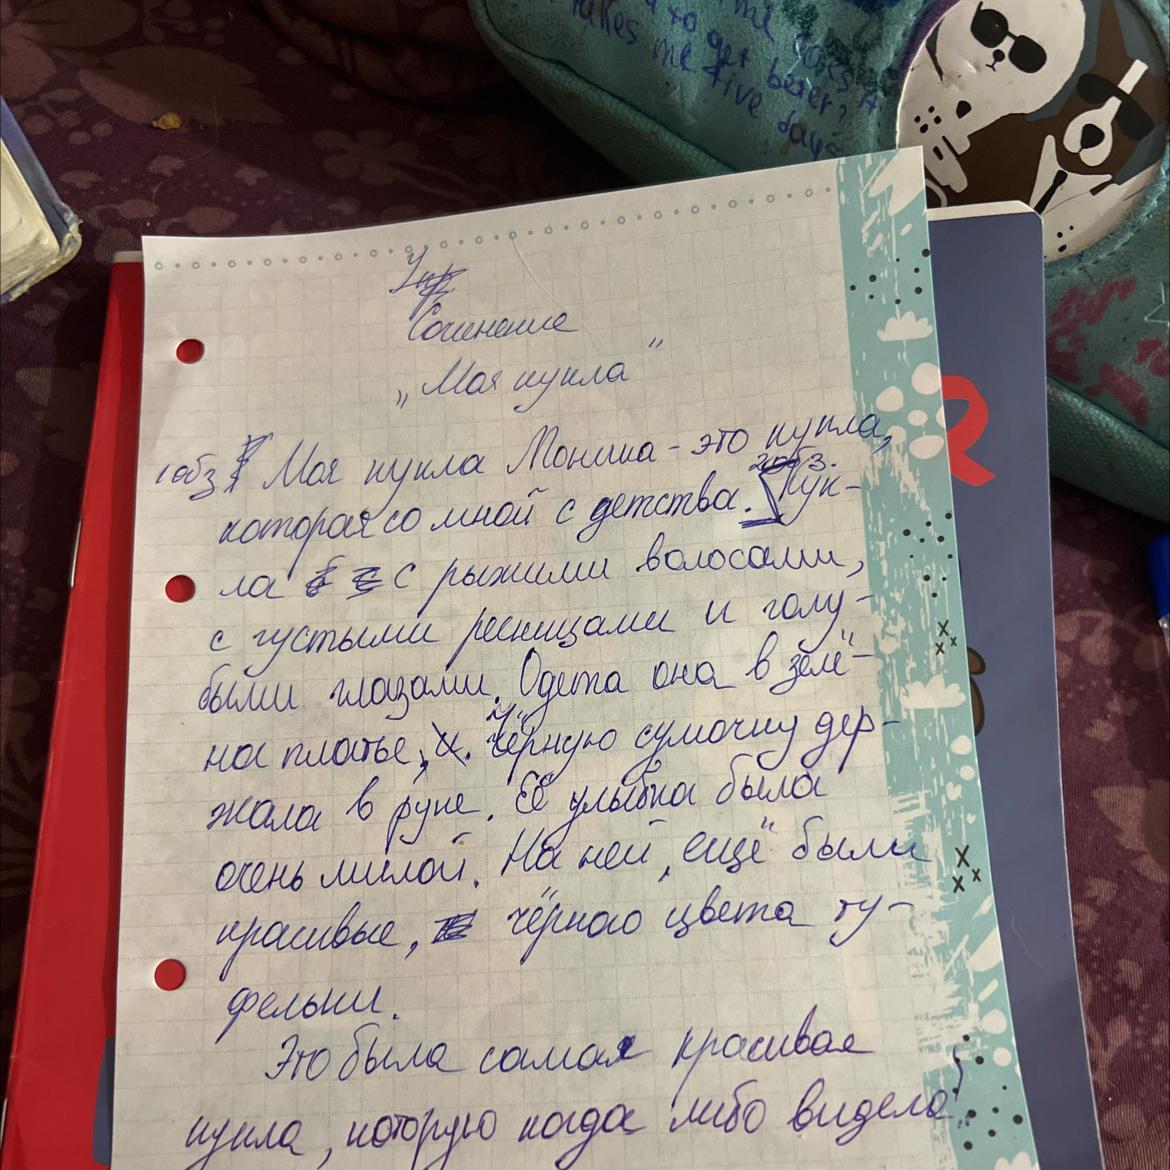 me
to get better?
takes me five days
Упр
Сочинение
„Моя кукла"
1 абз Моя кукла Моника - это кукла,
2 абз.
которая со мной с детства. Кук-
ла с рыжими волосами,
с густыми ресницами и голу-
быми глазами. Одета она в зелё-
на платье, и. чёрную сумочку дер-
жала в руке. Её улыбка была
очень милой. На ней, ещё были
красивые, чёрного цвета ту-
фельки.
Это была самая красивая
кукла, которую когда либо видела